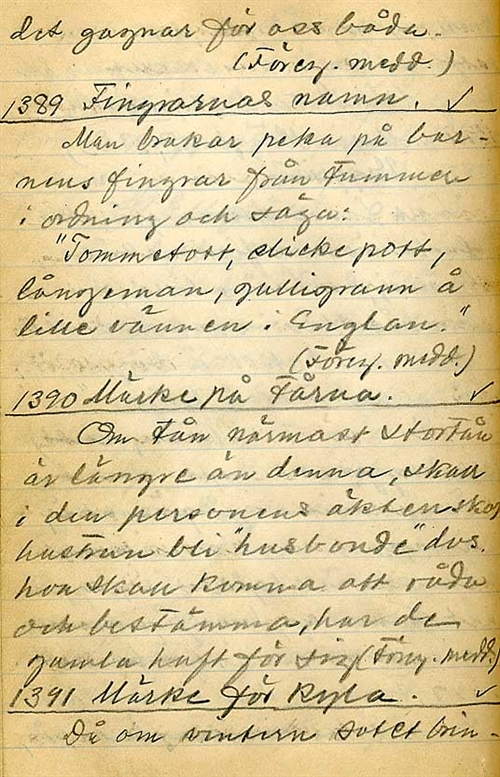 det gagnar för oss båda.
(Föreg. medd.)
1389 Fingrarnas namn. ✓
Man brukar peka på bar-
nens fingrar från tummen
i ordning och säga:
"Tommetott, slickepott,
långeman, gulligrann å
lille vännen i Englan."
(Föreg. medd.)
1390 Märke på tårna. ✓
Om tån närmast stortån
är längre än denna, skall
i den personens äktenskap
hustrun bli "husbonde" dvs.
hon skall komma att råda
och bestämma, har de
gamla haft för sig. (Föreg. medd.)
1391 Märke för kyla. ✓
Då om vintern sotet brin-